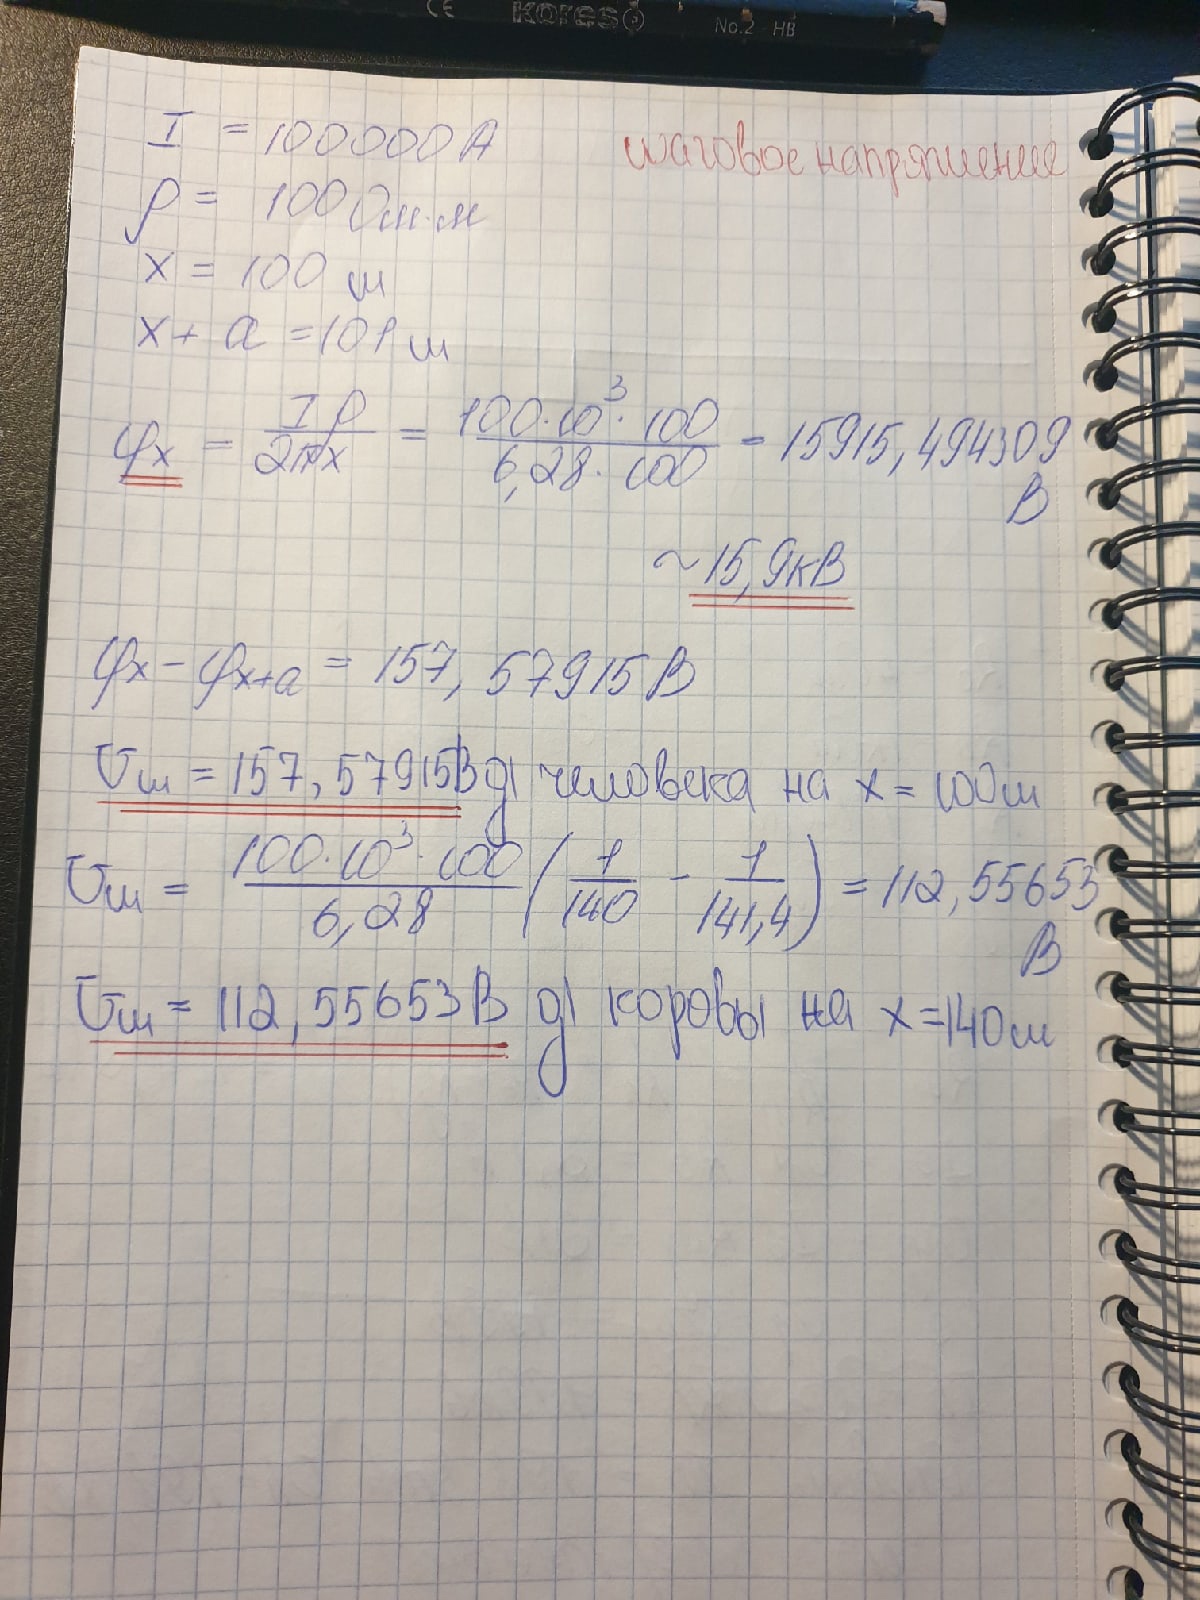 CE KORES No.2 - HB
I = 100000 А
шаговое напряжение
ρ = 100 Ом·м
x = 100 м
x + a = 101 м
φx = Iρ / 2πx = 100·10³·100 / 6,28·100 = 15915,494309 В
~15,9кВ
φx - φx+a = 157,57915 В
Uш = 157,57915В д/ человека на x = 100м
Uш = 100·10³·100 / 6,28 (1/140 - 1/141,4) = 112,55653 В
Uш = 112,55653В д/ коровы на x = 140м